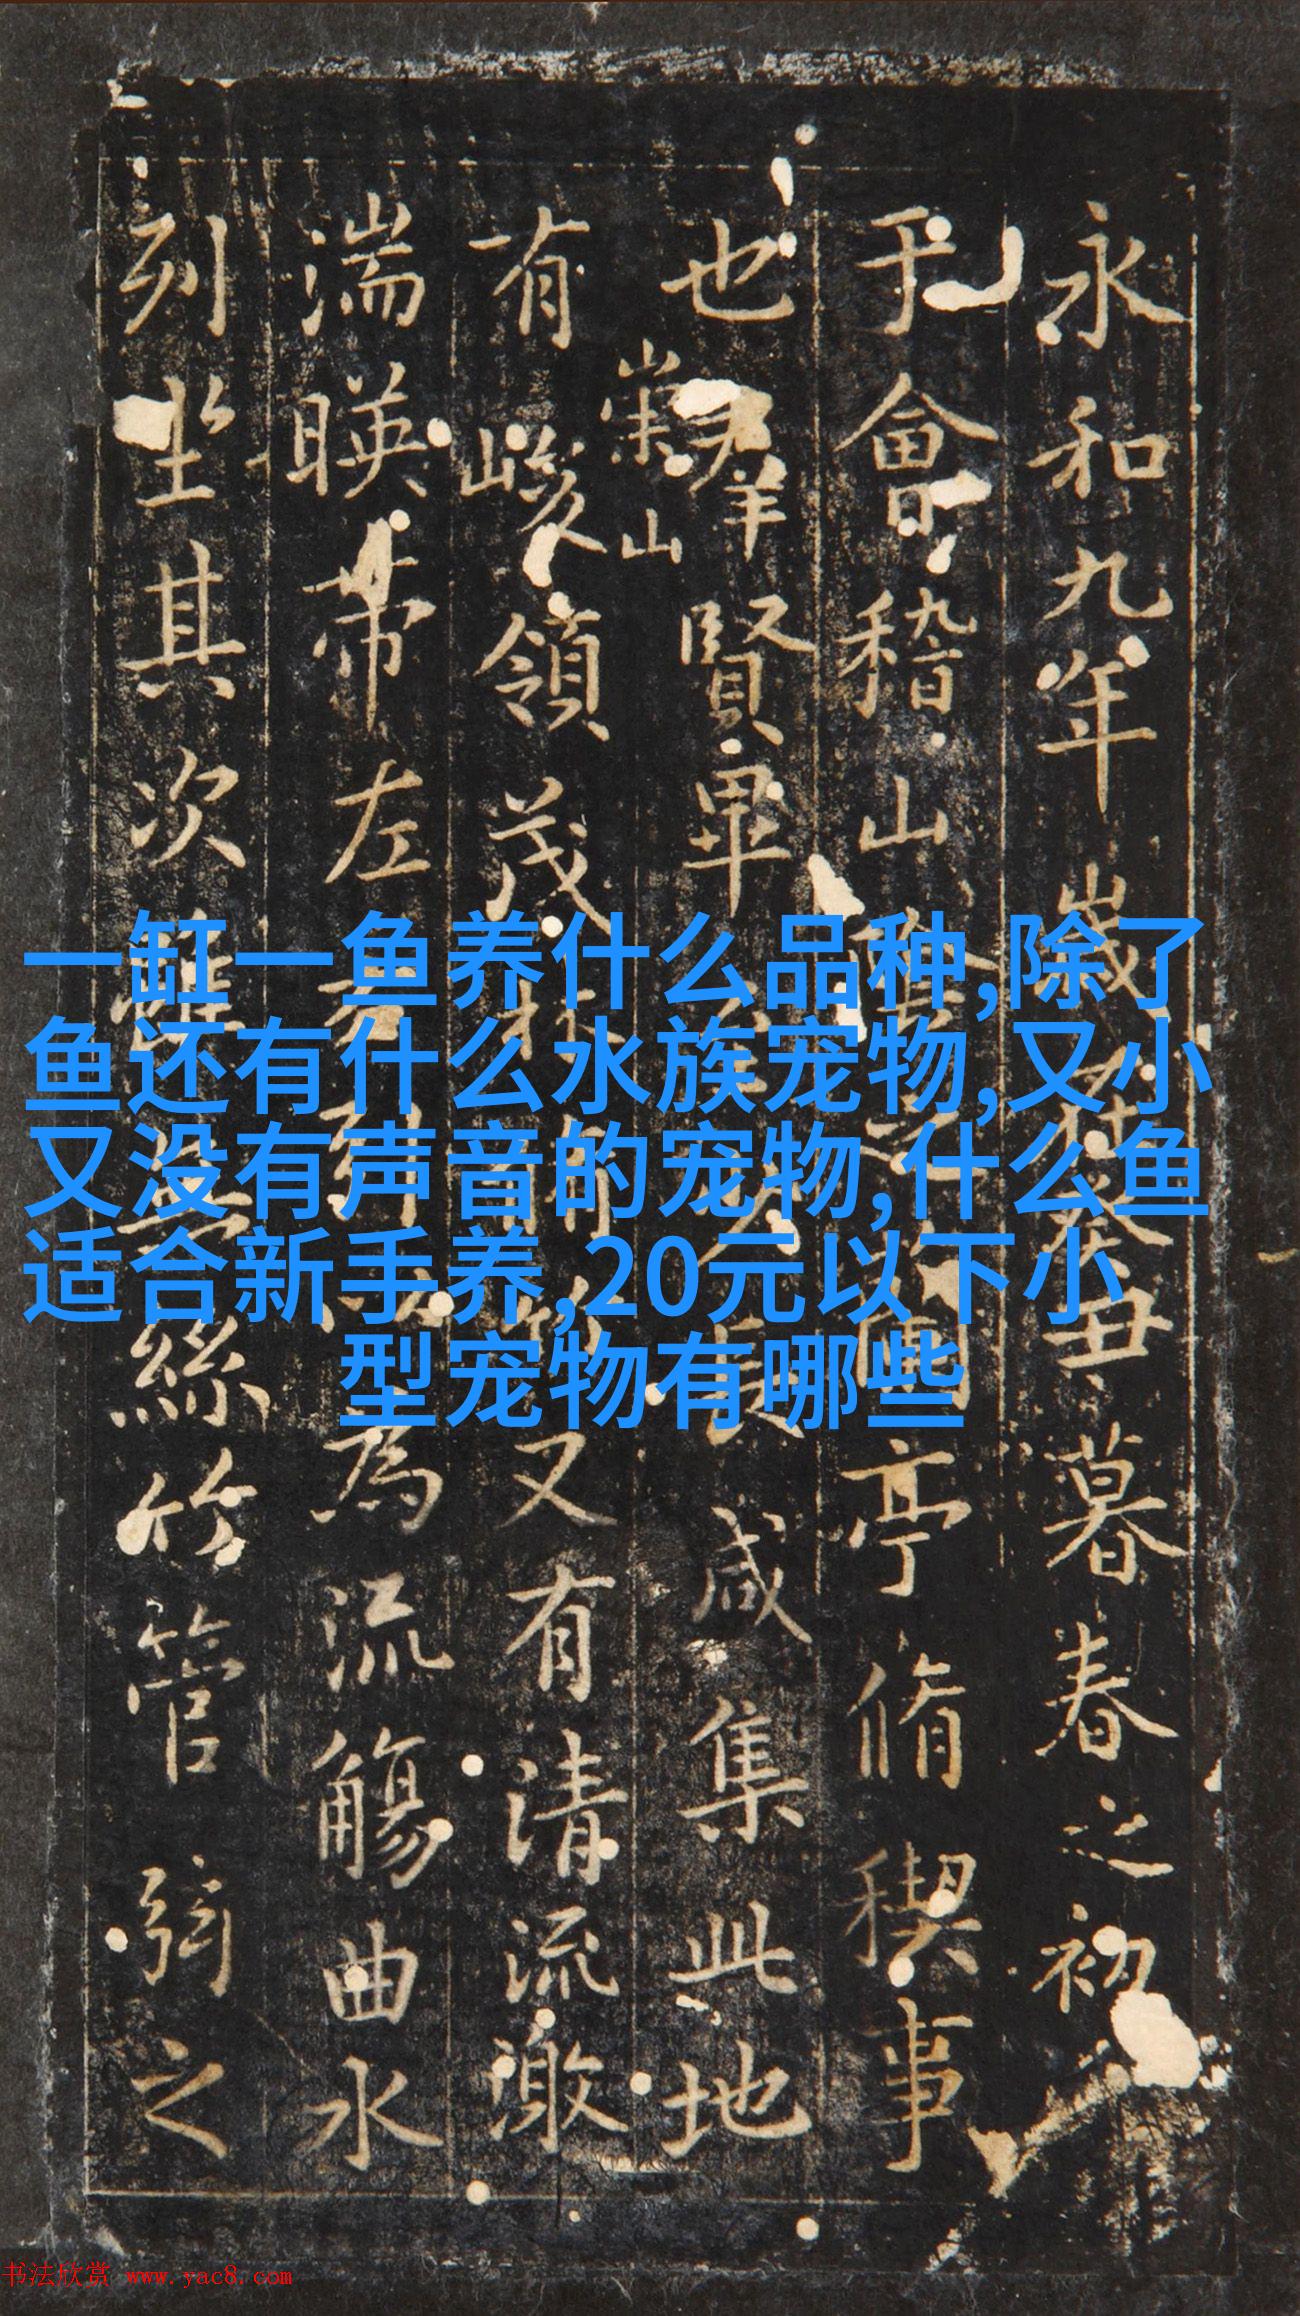 永和九年歲在癸丑暮春之初
于會稽山
亭脩禊事
也羣賢畢
咸集此地
崇山
有峻領茂
又有清流激
湍暎帶左
為流觴曲水
列坐其次
絲竹管弦之
一缸一鱼养什么品种,除了
鱼还有什么水族宠物,又小
又没有声音的宠物,什么鱼
适合新手养,20元以下小
型宠物有哪些
书法欣赏 www.yac8.com